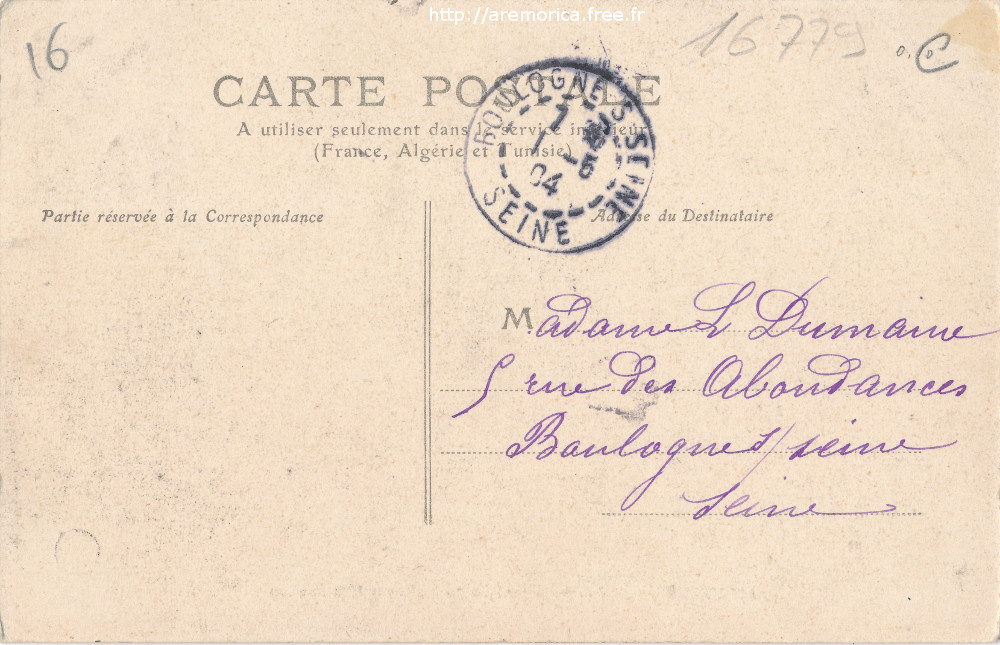 http://aremorica.free.fr
16
16779
CARTE POSTALE
A utiliser seulement dans le service intérieur
(France, Algérie et Tunisie)
BOULOGNE S SEINE
7
1 -6
04
SEINE
Partie réservée à la Correspondance
Adresse du Destinataire
Madame L Dumaine
5 rue des Abondances
Boulogne s/ seine
Seine